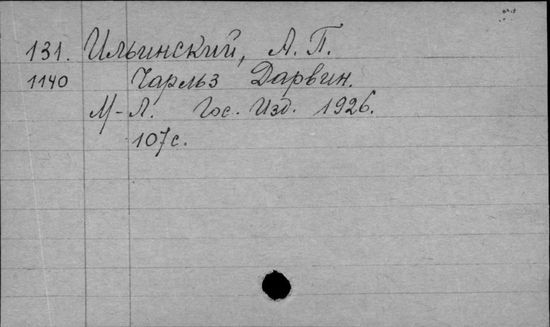 131. Ильинский, А. П.
1140 Чарльз Дарвин.
М-Л. Гос. Изд. 1926.
107 с.